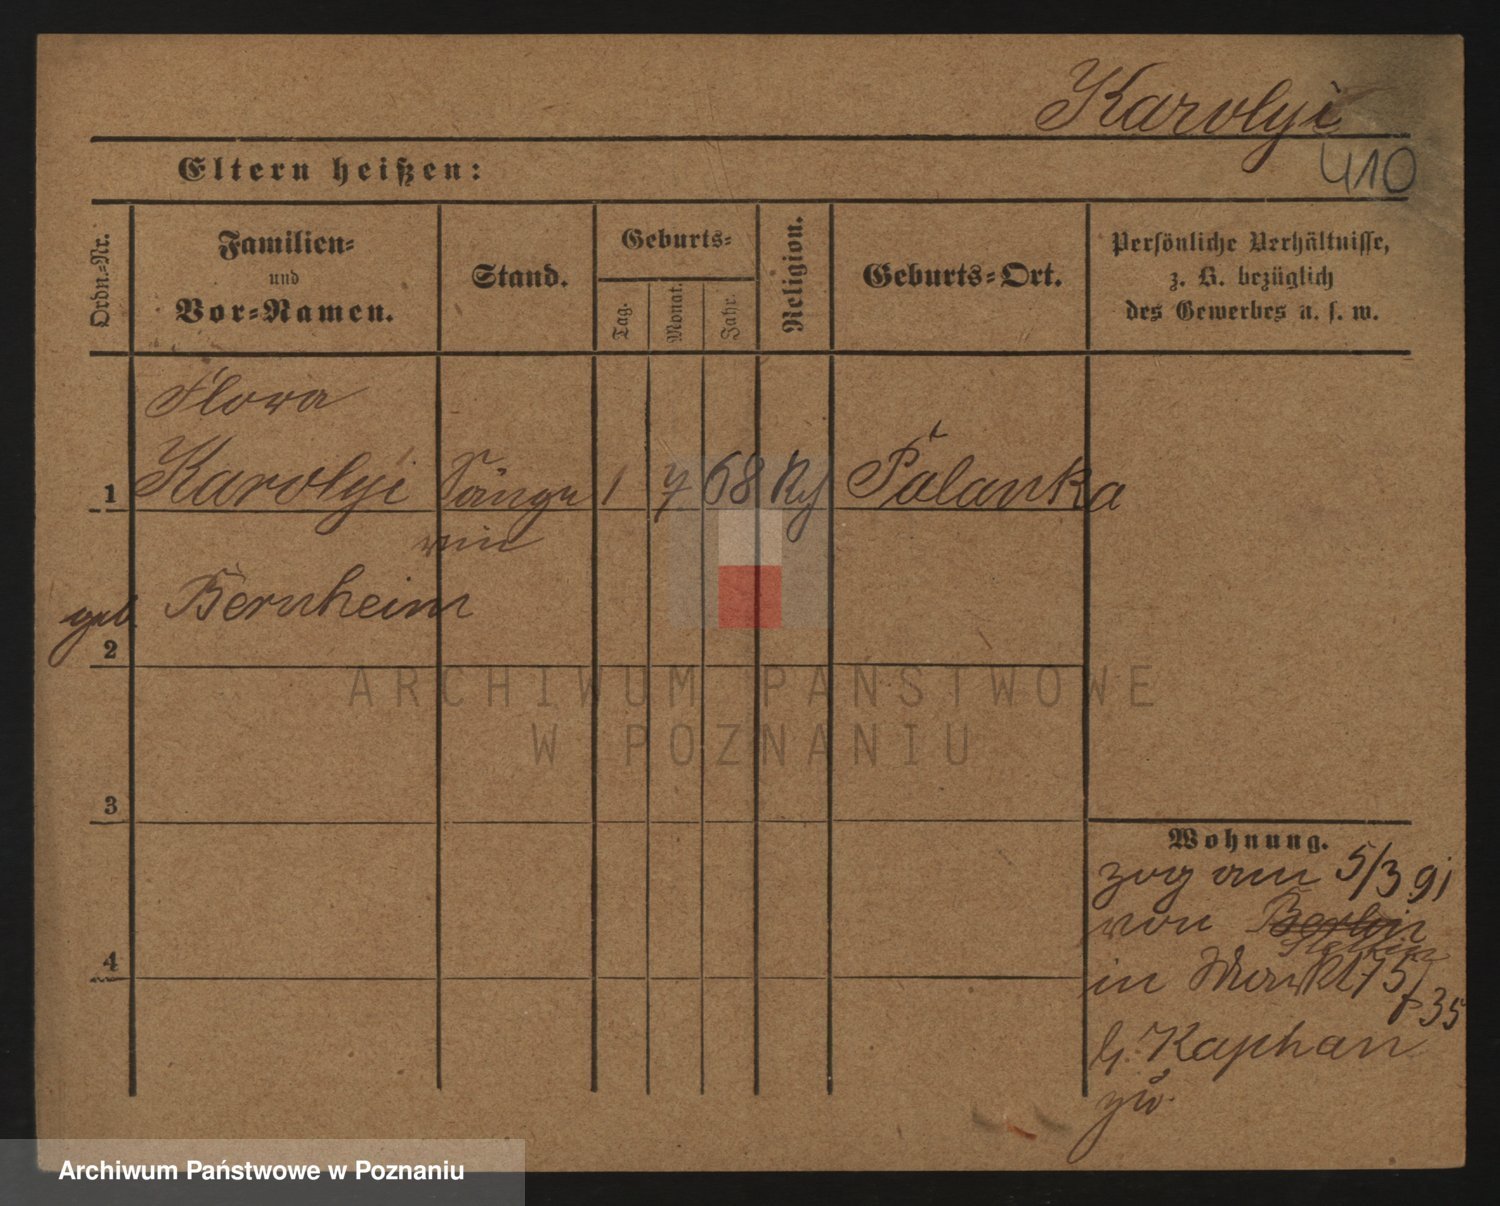 Karolyi
410
Eltern heißen:
Ordn.-Nr.
Familien-
und
Vor-Namen.
Stand.
Geburts-
Tag.
Monat.
Jahr.
Religion.
Geburts-Ort.
Persönliche Verhältnisse,
z. B. bezüglich
des Gewerbes u. s. w.
Flora
1 Karolyi Sänge 1 7. 68 Palanka
rin
geb. Bernheim
2
3
4
Wohnung.
zog am 5/3 91
von Berlin
Stettin
in 175
35
b. Kaphan
zu
ARCHIWUM PAŃSTWOWE
W POZNANIU
Archiwum Państwowe w Poznaniu